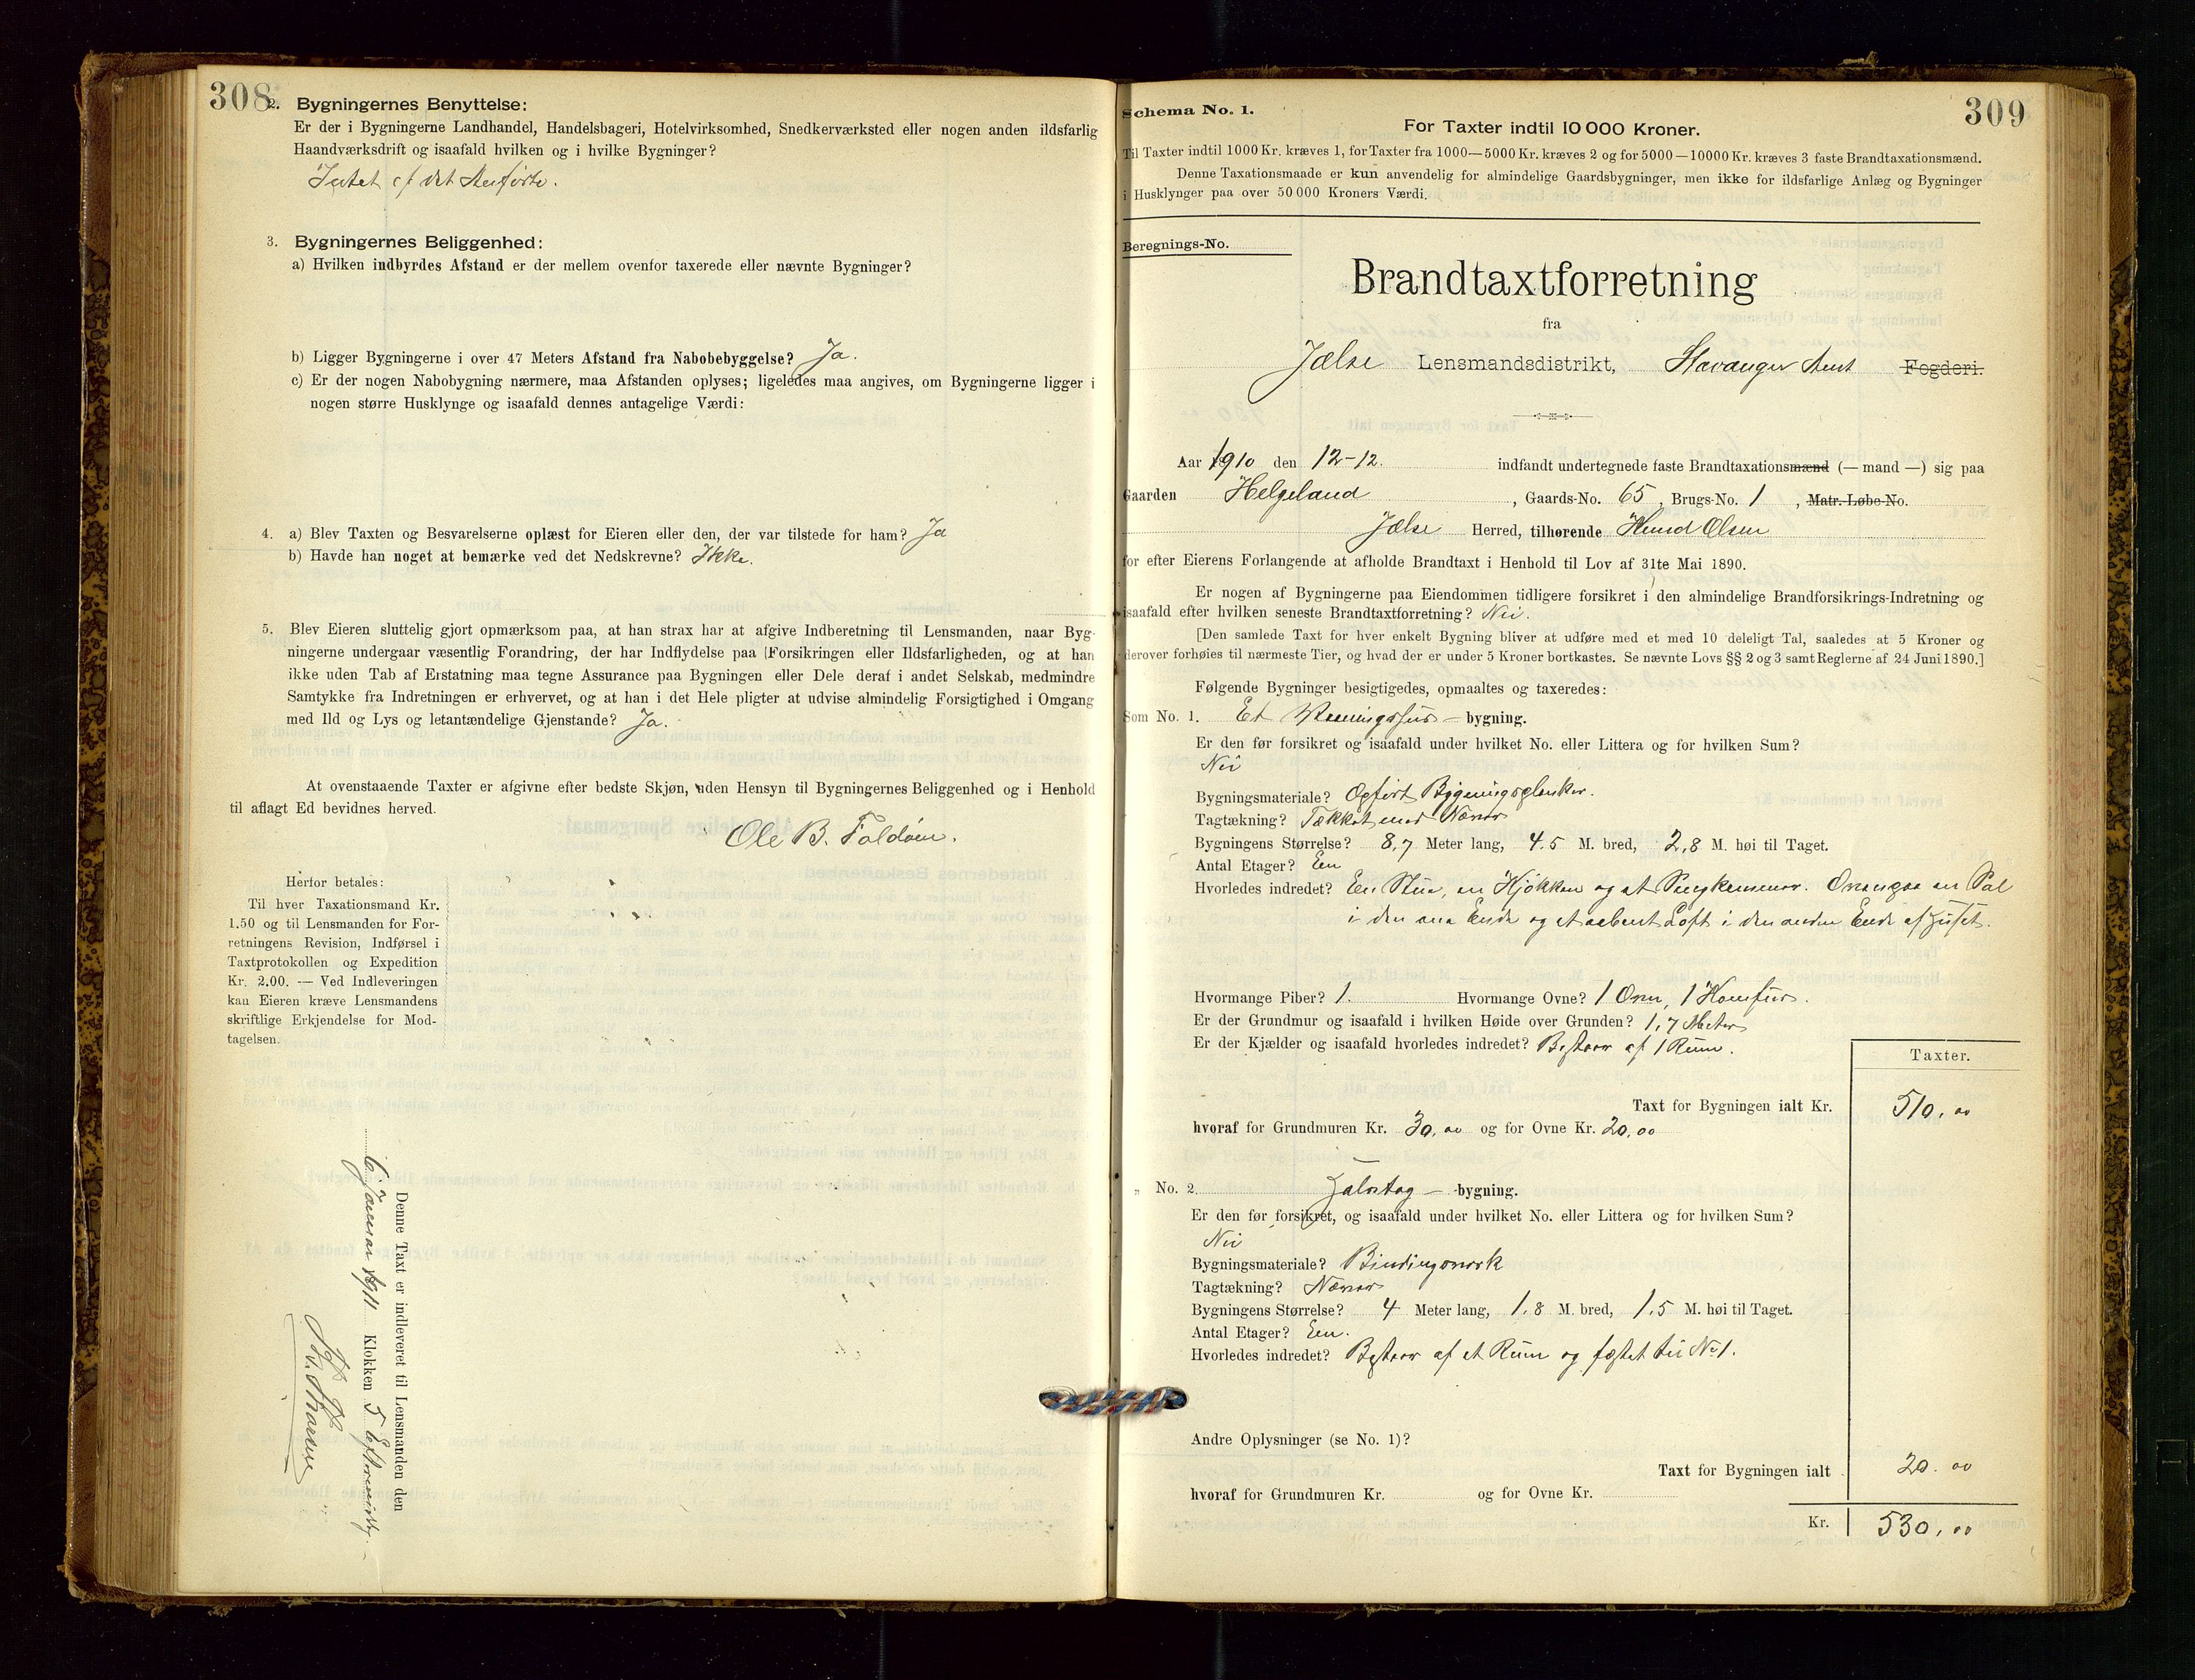 308
2. Bygningernes Benyttelse:
Er der i Bygningerne Landhandel, Handelsbageri, Hotelvirksomhed, Snedkerværksted eller nogen anden ildsfarlig
Haandværksdrift og isaafald hvilken og i hvilke Bygninger?
Intet af det Anførte.
3. Bygningernes Beliggenhed:
a) Hvilken indbyrdes Afstand er der mellem ovenfor taxerede eller nævnte Bygninger?
b) Ligger Bygningerne i over 47 Meters Afstand fra Nabobebyggelse? Ja.
c) Er der nogen Nabobygning nærmere, maa Afstanden oplyses; ligeledes maa angives, om Bygningerne ligger i
nogen større Husklynge og isaafald dennes antagelige Værdi:
4. a) Blev Taxten og Besvarelserne oplæst for Eieren eller den, der var tilstede for ham? Ja
b) Havde han noget at bemærke ved det Nedskrevne? Ikke.
5. Blev Eieren sluttelig gjort opmærksom paa, at han strax har at afgive Indberetning til Lensmanden, naar Byg-
ningerne undergaar væsentlig Forandring, der har Indflydelse paa Forsikringen eller Ildsfarligheden, og at han
ikke uden Tab af Erstatning maa tegne Assurance paa Bygningen eller Dele deraf i andet Selskab, medmindre
Samtykke fra Indretningen er erhvervet, og at han i det Hele pligter at udvise almindelig Forsigtighed i Omgang
med Ild og Lys og letantændelige Gjenstande? Ja.
At ovenstaaende Taxter er afgivne efter bedste Skjøn, uden Hensyn til Bygningernes Beliggenhed og i Henhold
til aflagt Ed bevidnes herved.
Ole B. Foldøen.
Herfor betales:
Til hver Taxationsmand Kr.
1.50 og til Lensmanden for For-
retningens Revision, Indførsel i
Taxtprotokollen og Expedition
Kr. 2.00. — Ved Indleveringen
kan Eieren kræve Lensmandens
skriftlige Erkjendelse for Mod-
tagelsen.
Denne Taxt er indleveret til Lensmanden den
6 Januar 1911 Klokken 5 Eftermiddag.
309
Schema No. 1.
For Taxter indtil 10 000 Kroner.
Til Taxter indtil 1000 Kr. kræves 1, for Taxter fra 1000—5000 Kr. kræves 2 og for 5000—10000 Kr. kræves 3 faste Brandtaxationsmænd.
Denne Taxationsmaade er kun anvendelig for almindelige Gaardsbygninger, men ikke for ildsfarlige Anlæg og Bygninger
i Husklynger paa over 50 000 Kroners Værdi.
Beregnings-No.
Brandtaxtforretning
fra
Jælse Lensmandsdistrikt, Stavanger Amt Fogderi.
Aar 1910 den 12-12. indfandt undertegnede faste Brandtaxationsmænd (— mand —) sig paa
Gaarden Helgeland, Gaards-No. 65, Brugs-No. 1, Matr.-Løbe-No.
Jælse Herred, tilhørende Knud Olsen
for efter Eierens Forlangende at afholde Brandtaxt i Henhold til Lov af 31te Mai 1890.
Er nogen af Bygningerne paa Eiendommen tidligere forsikret i den almindelige Brandforsikrings-Indretning og
isaafald efter hvilken seneste Brandtaxtforretning? Nei.
[Den samlede Taxt for hver enkelt Bygning bliver at udføre med et med 10 deleligt Tal, saaledes at 5 Kroner og
derover forhøies til nærmeste Tier, og hvad der er under 5 Kroner bortkastes. Se nævnte Lovs §§ 2 og 3 samt Reglerne af 24 Juni 1890.]
Følgende Bygninger besigtigedes, opmaaltes og taxeredes:
Som No. 1. Et Vaaningshus — bygning.
Er den før forsikret og isaafald under hvilket No. eller Littera og for hvilken Sum?
Nei
Bygningsmateriale? Opført Bygningsplanker.
Tagtækning? Tækket med Næver
Bygningens Størrelse? 8,7 Meter lang, 4.5 M. bred, 2,8 M. høi til Taget.
Antal Etager? Een
Hvorledes indredet? En Stue, en Kjøkken og et Sengkammer. Ovenpaa en Sal
i den ene Ende og et aabent Loft i den anden Ende af Huset.
Hvormange Piber? 1. Hvormange Ovne? 1 Ovn, 1 Komfur.
Er der Grundmur og isaafald i hvilken Høide over Grunden? 1,7 Meter
Er der Kjælder og isaafald hvorledes indredet? Bestaar af 1 Rum.
Taxter.
Taxt for Bygningen ialt Kr. 510,00
hvoraf for Grundmuren Kr. 30,00 og for Ovne Kr. 20,00
„ No. 2. Halvtag — -bygning.
Er den før forsikret, og isaafald under hvilket No. eller Littera og for hvilken Sum?
Nei
Bygningsmateriale? Bindingsverk
Tagtækning? Næver
Bygningens Størrelse? 4 Meter lang, 1.8 M. bred, 1.5 M. høi til Taget.
Antal Etager? Een.
Hvorledes indredet? Bestaar af et Rum og fæstet til No 1.
Andre Oplysninger (se No. 1)?
Taxt for Bygningen ialt 20.00
hvoraf for Grundmuren Kr. og for Ovne Kr.
Kr. 530,00